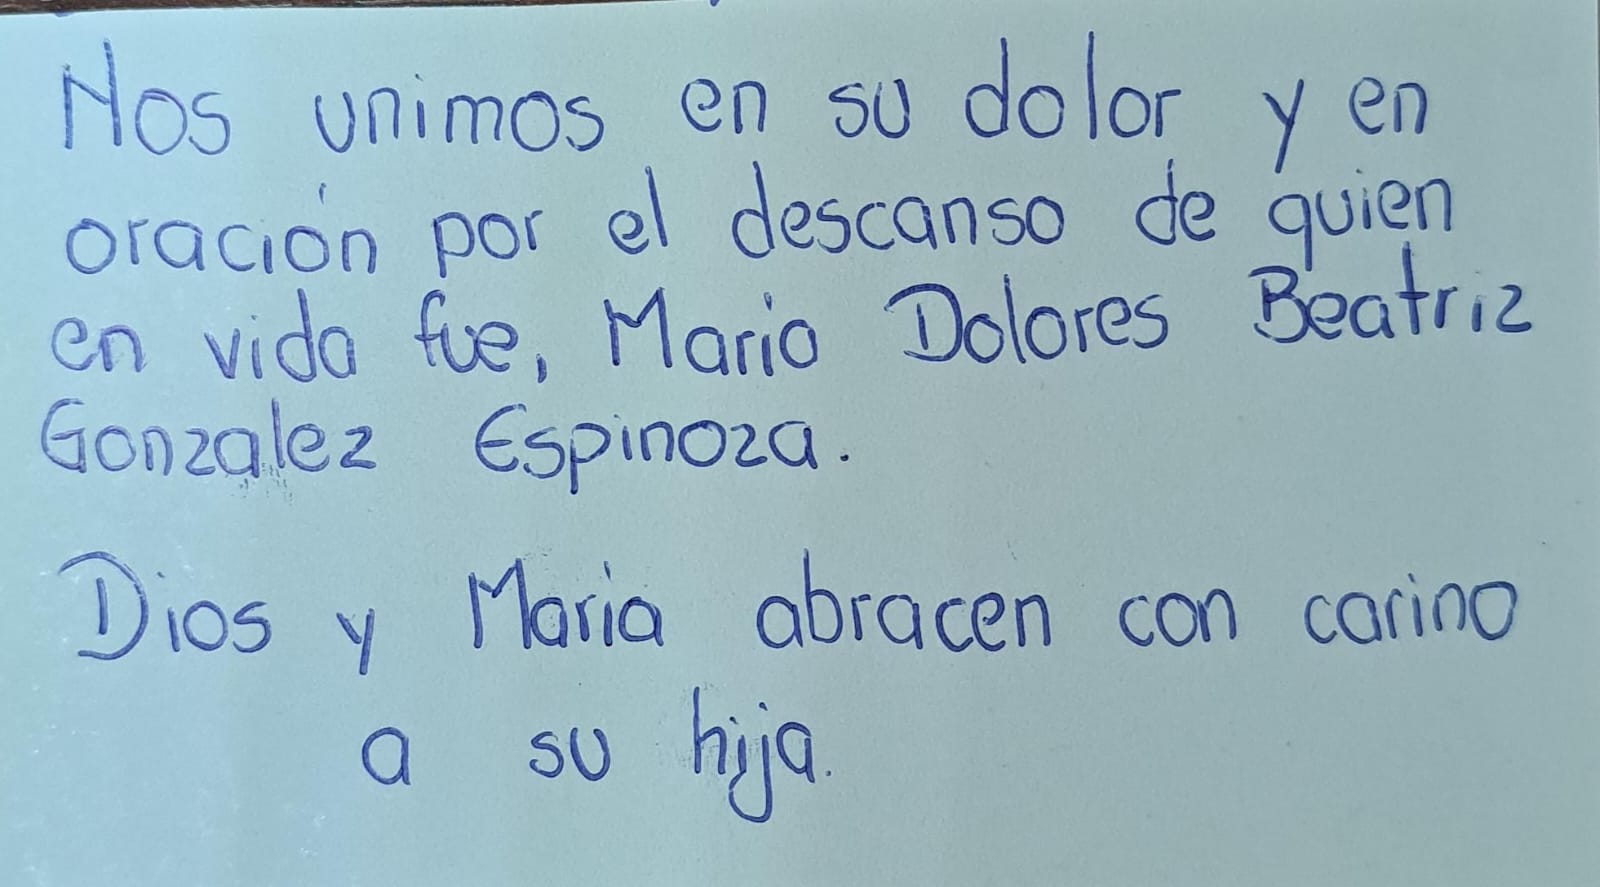 Nos unimos en su dolor y en
oración por el descanso de quien
en vida fue, Maria Dolores Beatriz
Gonzalez Espinoza.
Dios y Maria abracen con carino
a su hija.